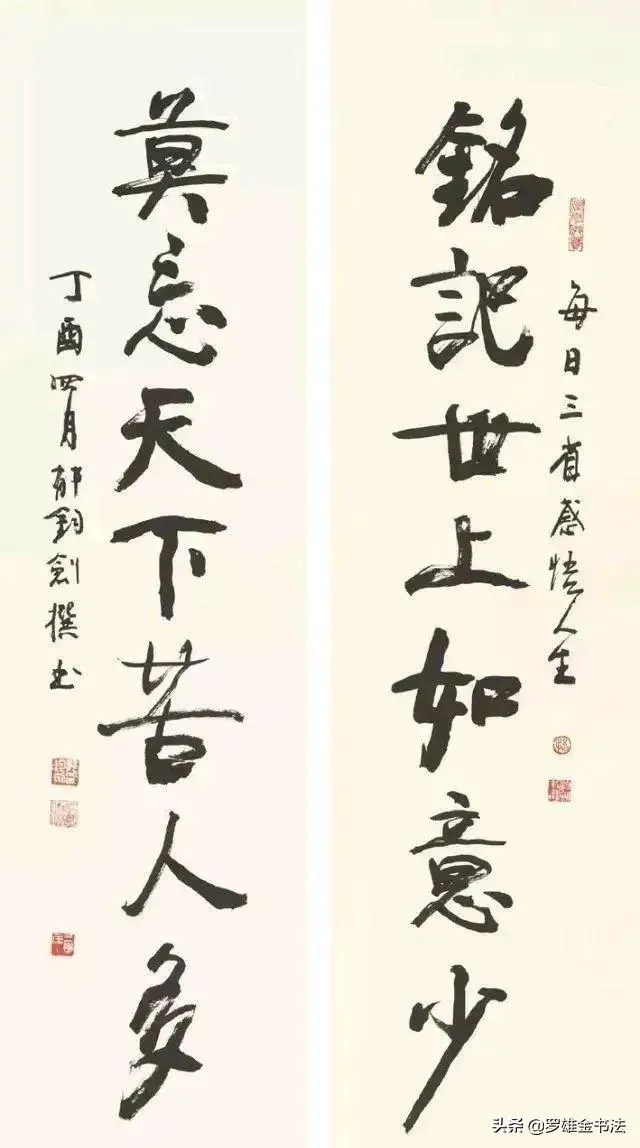 每日三省感悟人生
銘記世上如意少
莫忘天下苦人多
丁酉四月郁鈞劍撰书
头条 @罗雄金书法